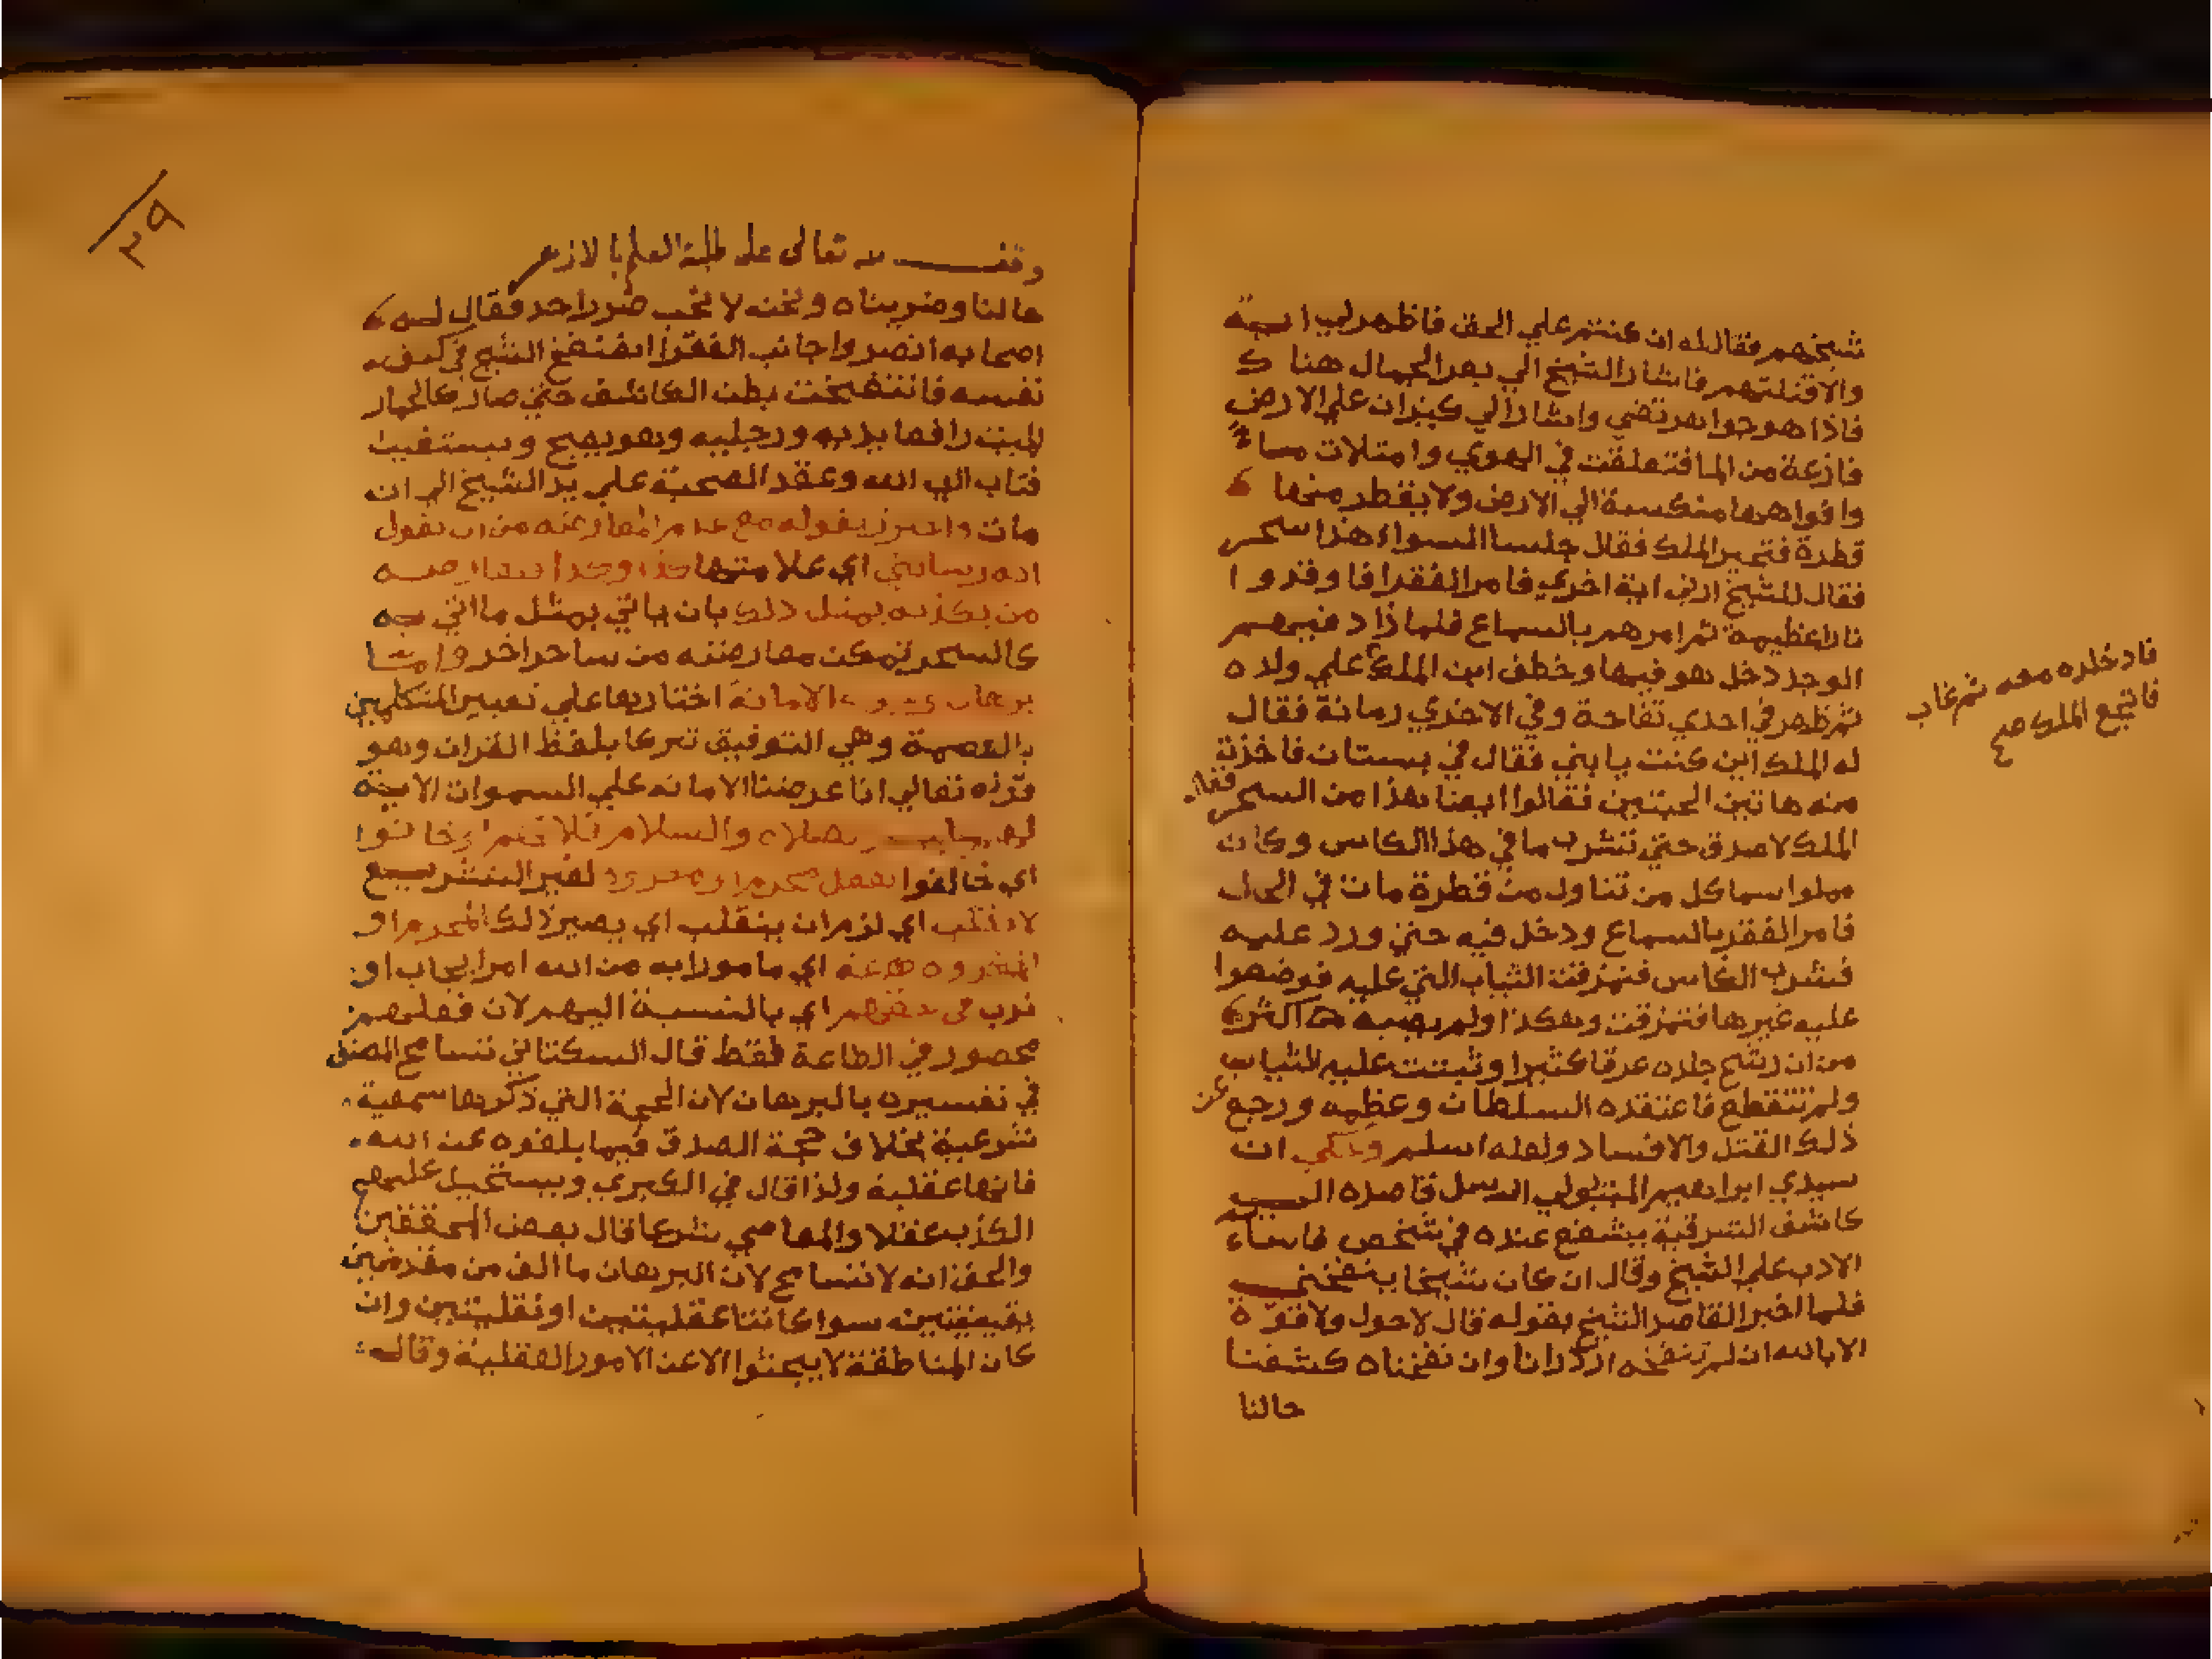 شيخهم فقال له ان كنتم علي الحق فاظهر لي اية
والاقتلتهم فاشار الشيخ الي بعر الجمال هناك
فاذا هو جواهر تضي واشار الي كيزان علي الارض
فارغة من الما فتعلقت في الهوي وامتلات ماء
وافواهها منكسة الي الارض ولا يقطر منها
قطرة فتحير الملك فقال جلسا السواء هذا سحر
فقال للشيخ ارني اية اخري فامر الفقرا فاوقدوا
نارا عظيمة ثم امرهم بالسماع فلما زاد فيهم
الوجد دخل هو فيها وخطف ابن الملك علي ولده
فادخله معه ثم غاب
فانجع الملك صح
ثم ظهر في احدي تفاحة وفي الاخري رمانة فقال
له الملك اين كنت يا بني فقال في بستان فاخذت
منه هاتين الحبتين فقالوا ايضا هذا من السحر فقال
الملك لا صدق حتي تشرب ما في هذا الكاس وكان
مملوا سما كل من تناول من قطرة مات في الحال
فامر الفقر بالسماع ودخل فيه حتي ورد عليه
فشرب الكاس فتمزقت الثياب التي عليه فوضعوا
عليه غيرها فتمزقت وهكذا ولم يصبه اكثر
من ان رشح جلده عرقا كثيرا وثبتت عليه الثياب
ولم تتقطع فاعتقده السلطان وعظمه ورجع عن
ذلك القتل والافساد ولعله اسلم وحكي ان
سيدي ابراهيم المتبولي ارسل قاصده الي
كاشف الشرقية يشفع عنده في شخص فاساء
الادب علي الشيخ وقال ان كان شيخا ينفخني
فلما اخبر القاصد الشيخ بقوله قال لا حول ولا قوة
الا بالله ان لم ننفخه ازدرانا وان نفخناه كشفنا
حالنا
٢٩
وقف لله تعالى على طلبة العلم بالازهر
حالنا وضريناه ونحن لا نحب ضرر احد فقال له
اصحابه انصروا جانب الفقرا فنفخ الشيخ في كف
نفسه فانتفخت بطن الكاشف حتي صار كالحمار
الميت رافعا يديه ورجليه وهو يصيح ويستغيث
فتاب الي الله وعقد الصحبة علي يد الشيخ الي ان
مات واحترز بقوله مع عدم المعارضة من ان يقول
اية رسالتي اي علامتها كذا وكذا فيعارضه
من يكذبه بمثل ذلك بان ياتي بمثل ما اتي به
كالسحر تمكن معارضته من ساحر اخر واما
برهان وجوب الامانة اختارها علي تعبير المتكلمين
بالعصمة وهي التوفيق تبركا بلفظ القران وهو
قوله تعالي انا عرضنا الامانه علي السموات الاية
لهم عليهم الصلاة والسلام فلانهم لو خانوا
اي خالفوا بفعل محرم او مكروه لغير التشريع
لانقلب اي لزم ان ينقلب اي يصير ذلك المحرم او
المكروه طاعة اي مامورا به من الله امر ايجاب او
ندب في حقهم اي بالنسبة اليهم لان فعلهم
محصور في الطاعة فقط قال السكتاني تسامح المصنف
في تفسيره بالبرهان لان الحجة التي ذكرها سمعية
شرعية بخلاف حجة الصدق فيما بلغوه عن الله
فانها عقلية ولذا قال في الكبري ويستحيل عليهم
الكذب عقلا والمعاصي شرعا قال بعض المحققين
والحق انه لا تسامح لان البرهان ما الف من مقدمتين
يقينيتين سوا كانتا عقليتين او نقليتين وان
كان المناطقة لا يبحثوا الا عن الامور العقلية وقال